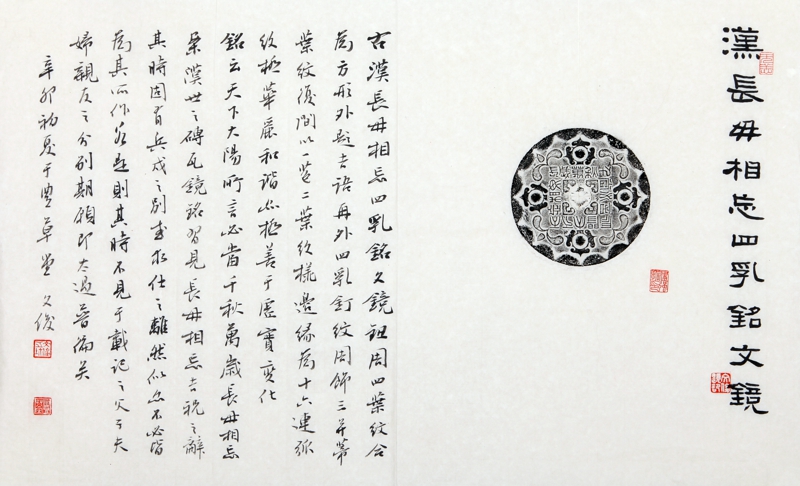 漢長毋相忘四乳銘文鏡
右漢長毋相忘四乳銘文鏡鈕周四葉紋合
爲方形外題吉語再外四乳釘紋周飾三并蒂
葉紋復間以一蕊二葉紋樣邊緣爲十六連弧
紋極華麗和諧亦極善于虛實變化
銘云天下大陽所言必當千秋萬歲長毋相忘
案漢世之磚瓦鏡銘習見長毋相忘吉祝之辭
其時固有兵戍之別或求仕之離然似亦不必皆
爲其所作永題則其時不見于載記之父子夫
婦親友之分別期顧即太過普徧矣
辛卯初夏于豐草堂 久俊